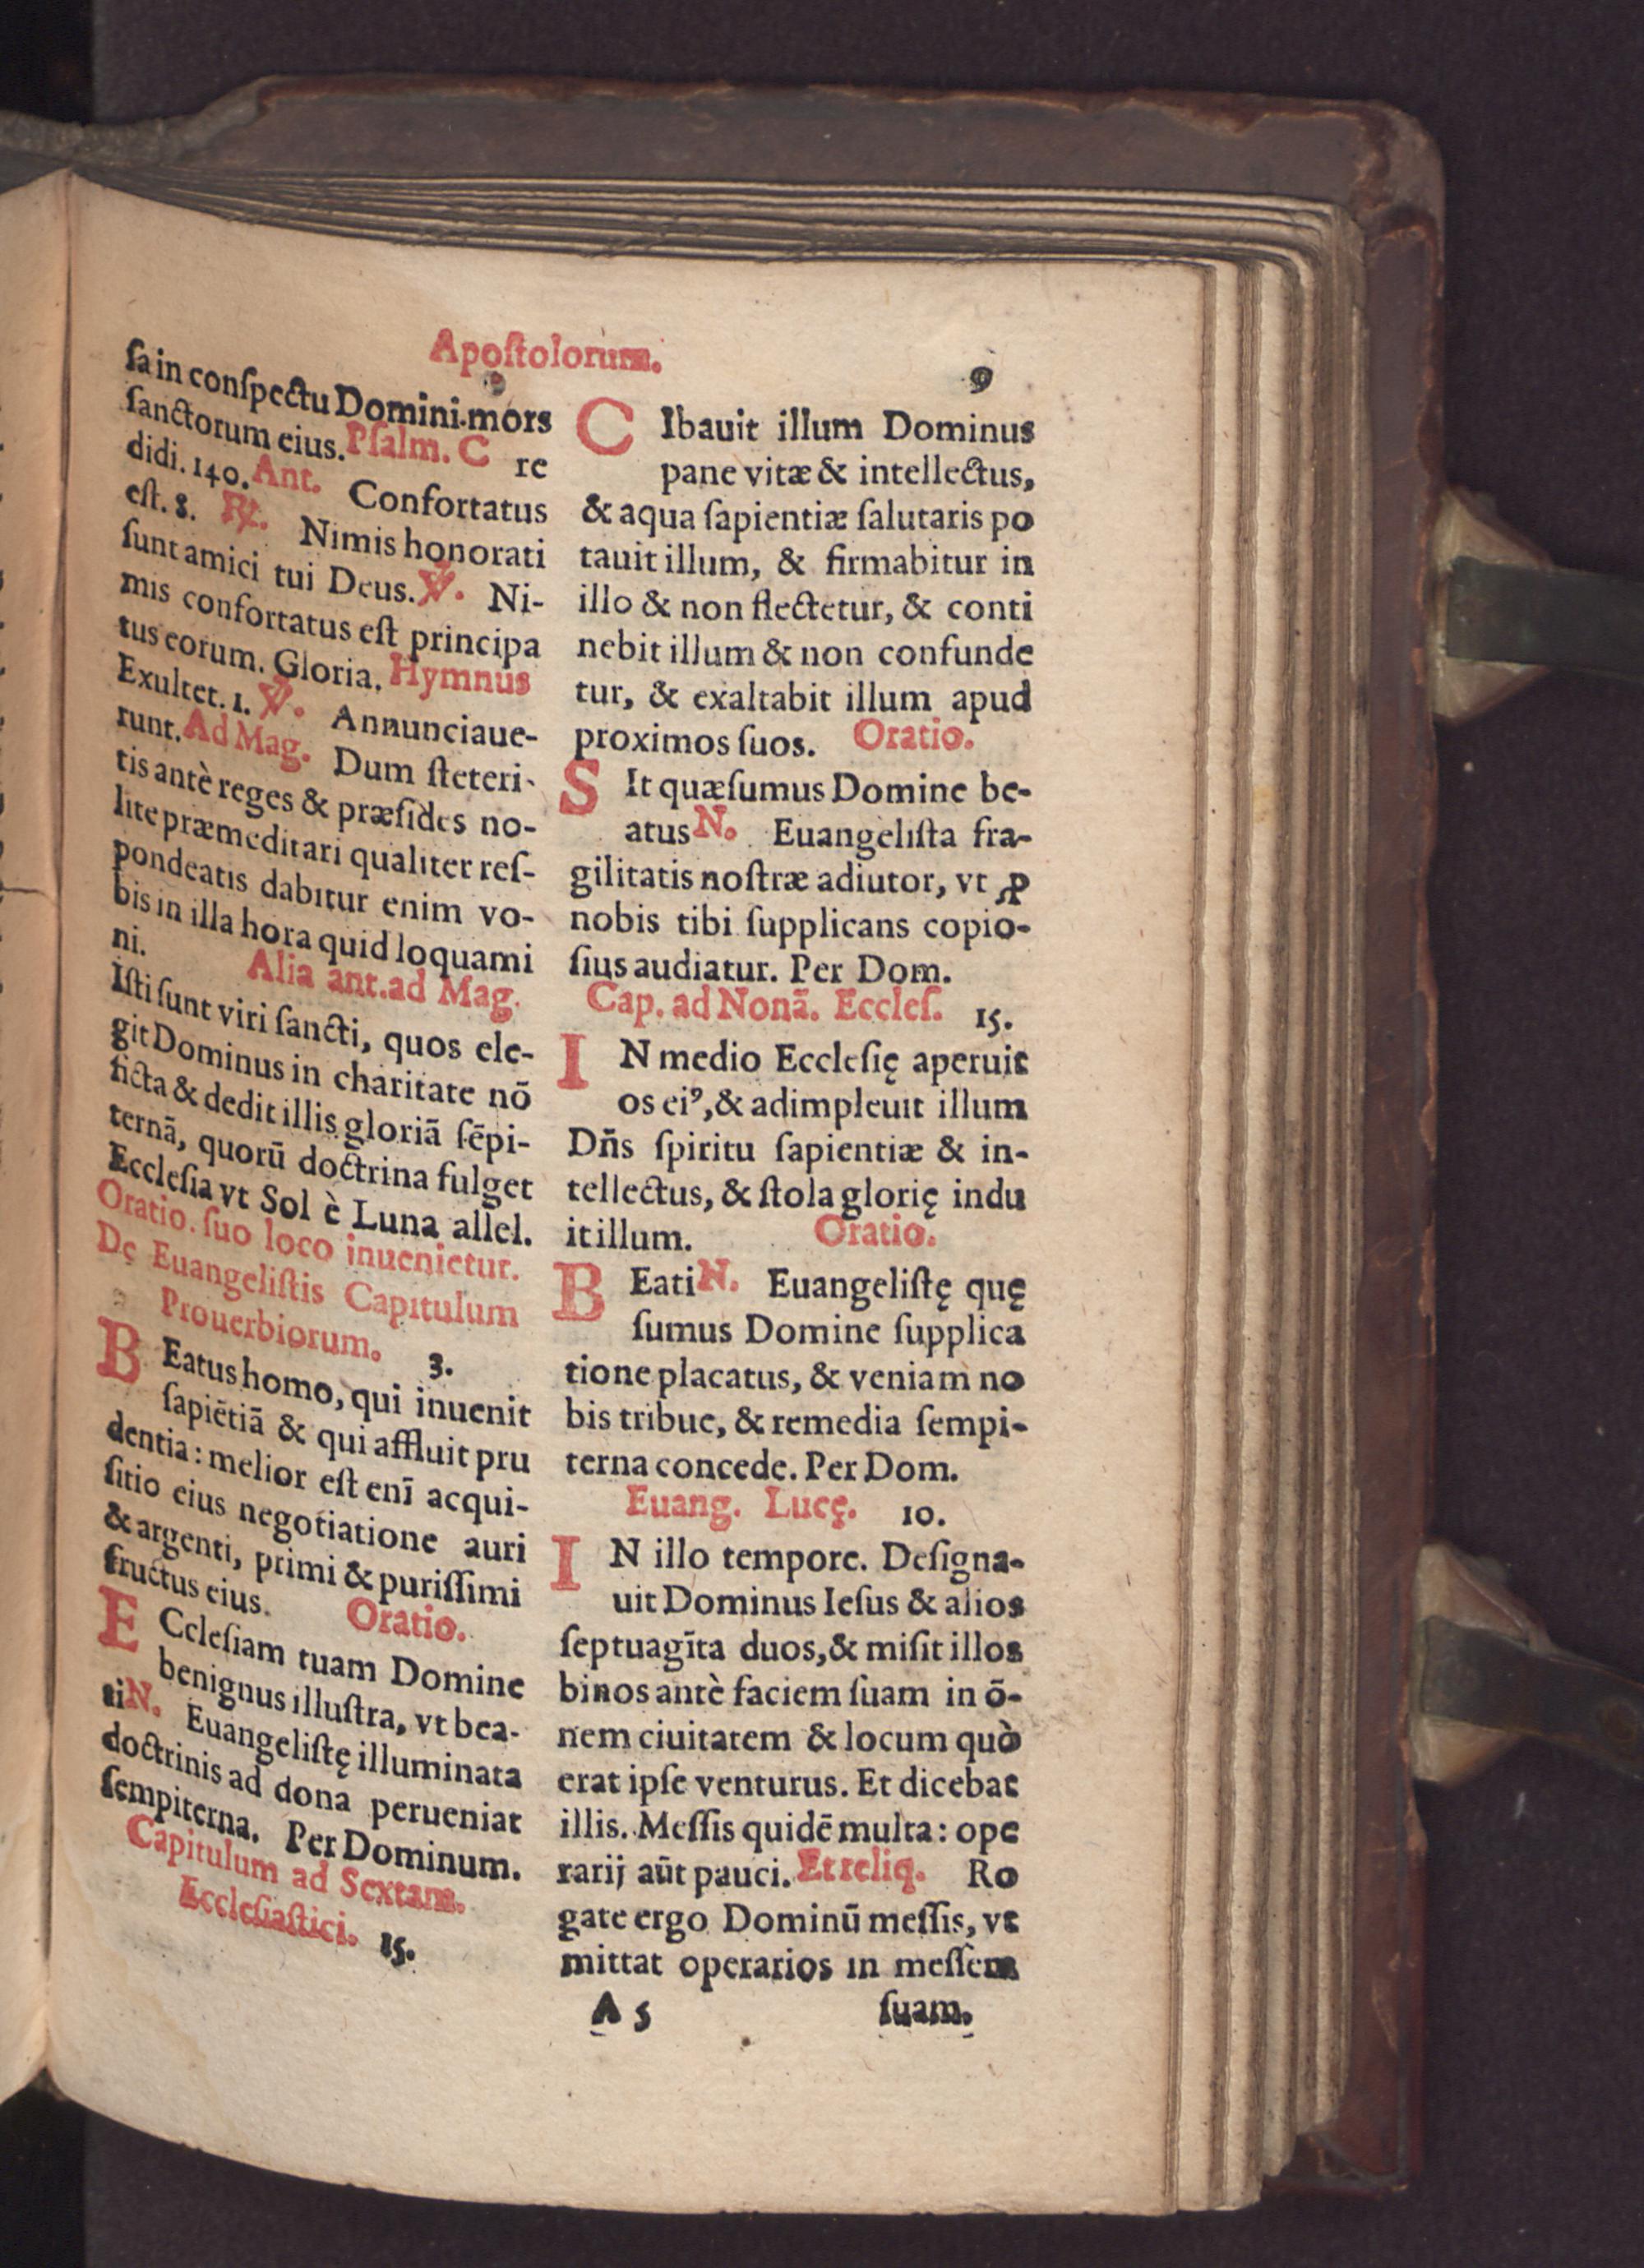 Apoſtolorum.
9
ſa in conſpectu Domini.mors
ſanctorum eius. Pſalm. C re
didi. 140. Ant. Confortatus
eſt. 8. ℟. Nimis honorati
ſunt amici tui Deus. ℣. Ni-
mis confortatus eſt principa
tus eorum. Gloria. Hymnus
Exultet. 1. ℣. Annunciaue-
runt. Ad Mag. Dum ſteteri-
tis antè reges & præſides no-
lite præmeditari qualiter reſ-
pondeatis dabitur enim vo-
bis in illa hora quid loquami
ni.
Alia ant. ad Mag.
Iſti ſunt viri ſancti, quos ele-
git Dominus in charitate nō
ficta & dedit illis gloriā ſēpi-
ternā, quorū doctrina fulget
Eccleſia vt Sol è Luna allel.
Oratio. ſuo loco inuenietur.
Dę Euangeliſtis Capitulum
Prouerbiorum. 3.
BEatus homo, qui inuenit
ſapiētiā & qui affluit pru
dentia: melior eſt enī acqui-
ſitio eius negotiatione auri
& argenti, primi & puriſſimi
fructus eius. Oratio.
ECcleſiam tuam Domine
benignus illuſtra, vt bea-
ti N. Euangeliſtę illuminata
doctrinis ad dona perueniat
ſempiterna. Per Dominum.
Capitulum ad Sextam.
Eccleſiaſtici. 15.
CIbauit illum Dominus
pane vitæ & intellectus,
& aqua ſapientiæ ſalutaris po
tauit illum, & firmabitur in
illo & non flectetur, & conti
nebit illum & non confunde
tur, & exaltabit illum apud
proximos ſuos. Oratio.
SIt quæſumus Domine be-
atus N. Euangeliſta fra-
gilitatis noſtræ adiutor, vt ꝓ
nobis tibi ſupplicans copio-
ſius audiatur. Per Dom.
Cap. ad Nonā. Eccleſ. 15.
IN medio Eccleſię aperuit
os eiꝰ, & adimpleuit illum
Dn̄s ſpiritu ſapientiæ & in-
tellectus, & ſtola glorię indu
it illum. Oratio.
BEati N. Euangeliſtę quę
ſumus Domine ſupplica
tione placatus, & veniam no
bis tribue, & remedia ſempi-
terna concede. Per Dom.
Euang. Lucę. 10.
IN illo tempore. Deſigna-
uit Dominus Ieſus & alios
ſeptuagīta duos, & miſit illos
binos antè faciem ſuam in ō-
nem ciuitatem & locum quò
erat ipſe venturus. Et dicebat
illis. Meſſis quidē multa: ope
rarij aūt pauci. Et reliq. Ro
gate ergo Dominū meſſis, vt
mittat operarios in meſſem
A 5 ſuam.